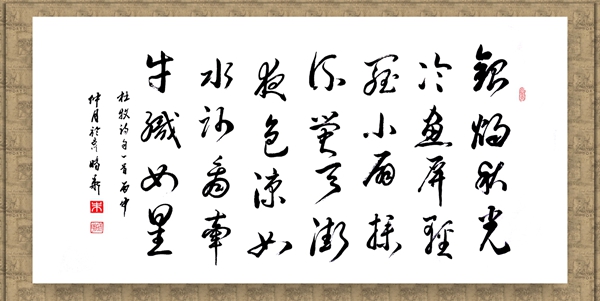 銀燭秋光
冷畫屏輕
羅小扇撲
流螢天街
夜色涼如
水卧看牽
牛織女星
杜牧詩一首丙申
仲月於京